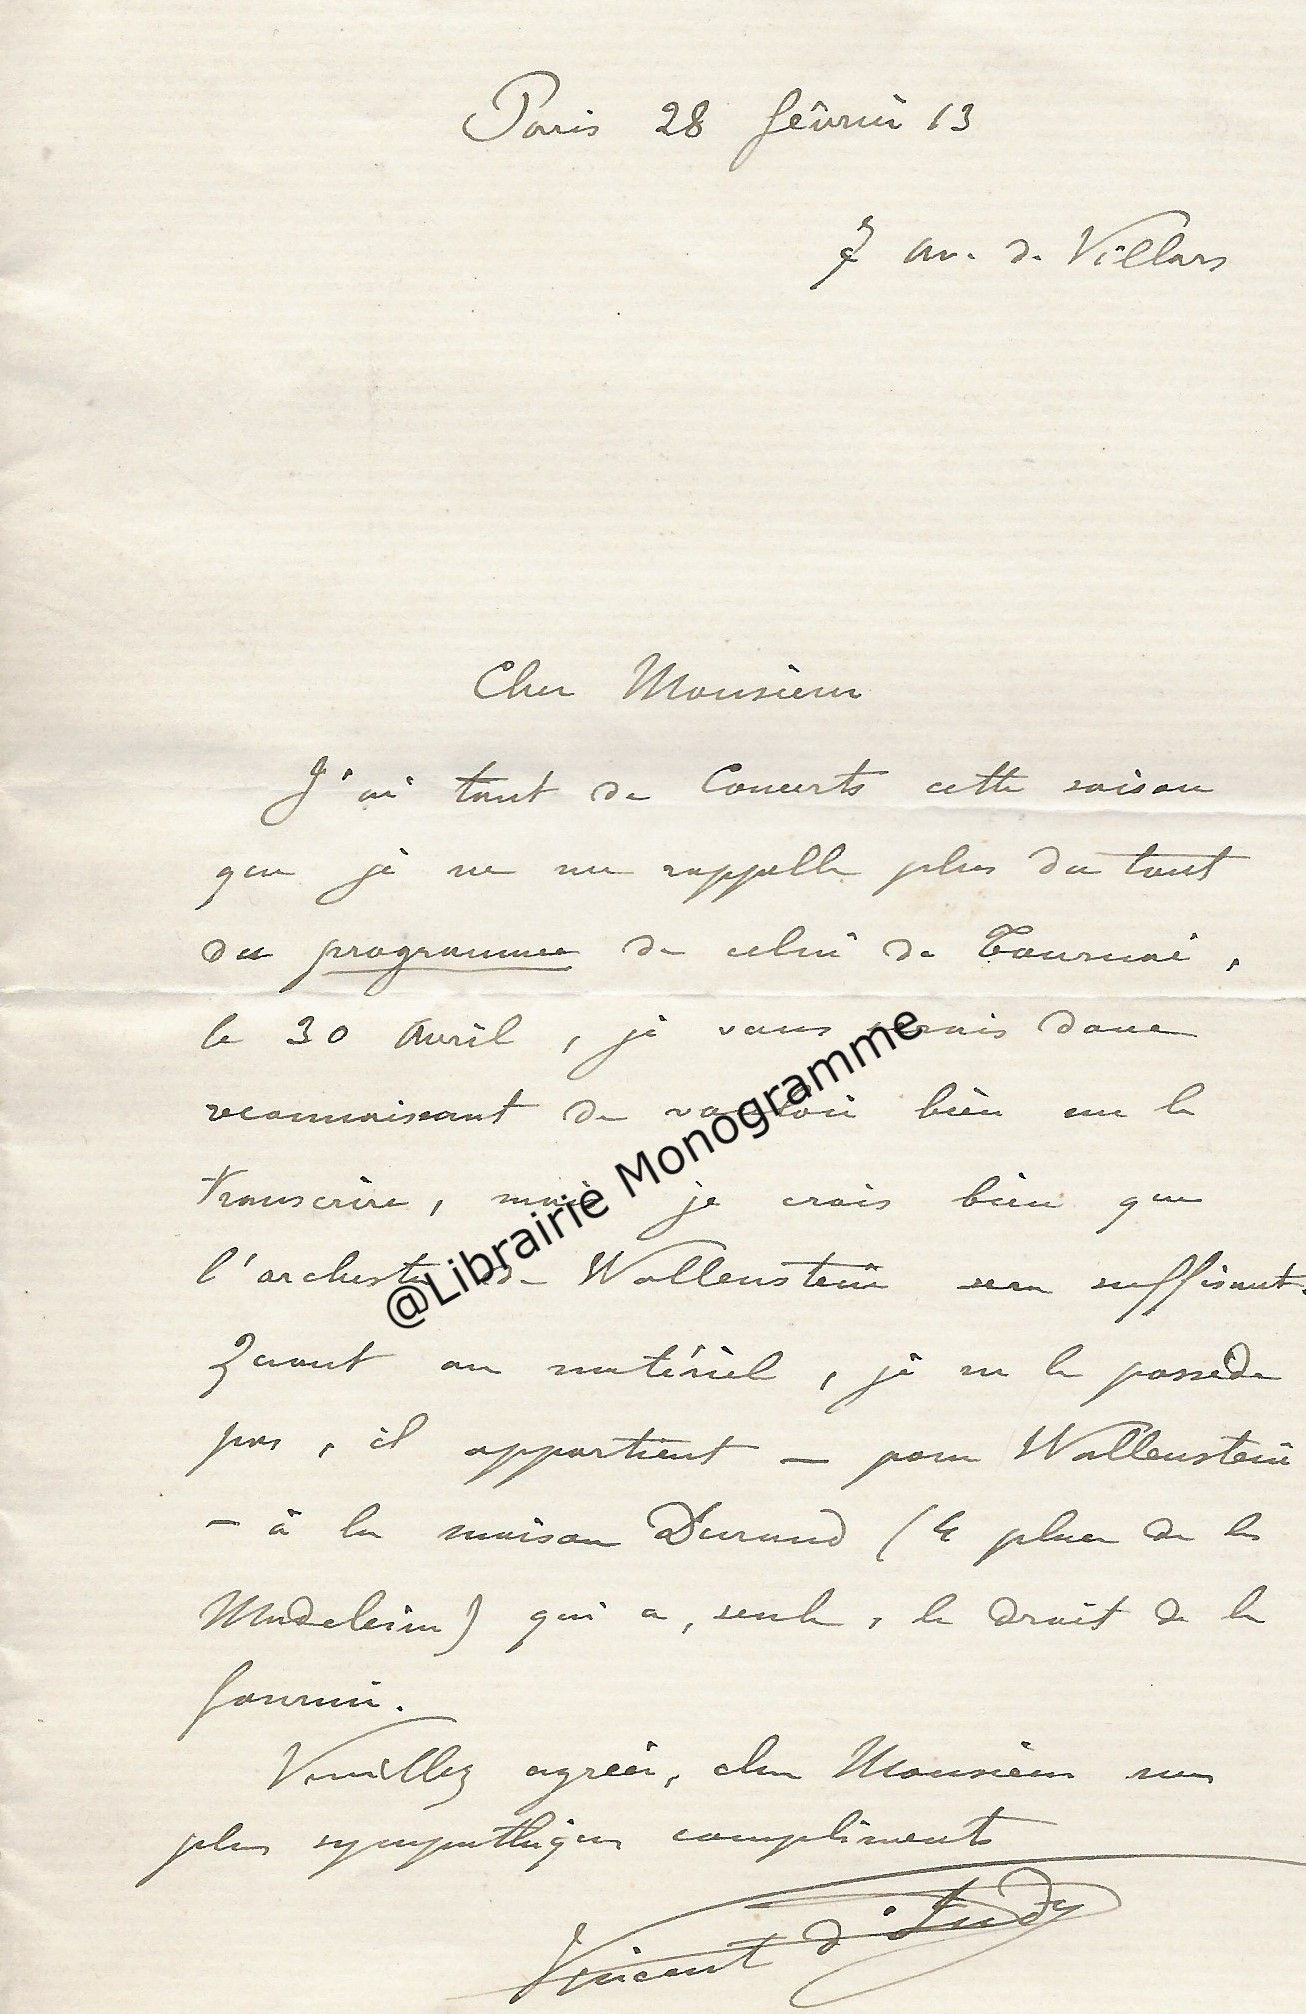 Paris 28 février 13
7 av. de Villars
Cher Monsieur
J'ai tant de Concerts cette saison
que je ne me rappelle plus du tout
du programme de celui de Tournai,
le 30 Avril, je vous serais donc
reconnaissant de vouloir bien me le
transcrire, mais je crois bien que
l'orchestre de Wallenstein sera suffisant.
Quant au matériel, je ne le possède
pas, il appartient — pour Wallenstein
— à la maison Durand (4 place de la
Madeleine) qui a, seule, le droit de le
fournir.
Veuillez agréer, cher Monsieur mes
plus sympathiques compliments
Vincent d'Indy
@Librairie Monogramme